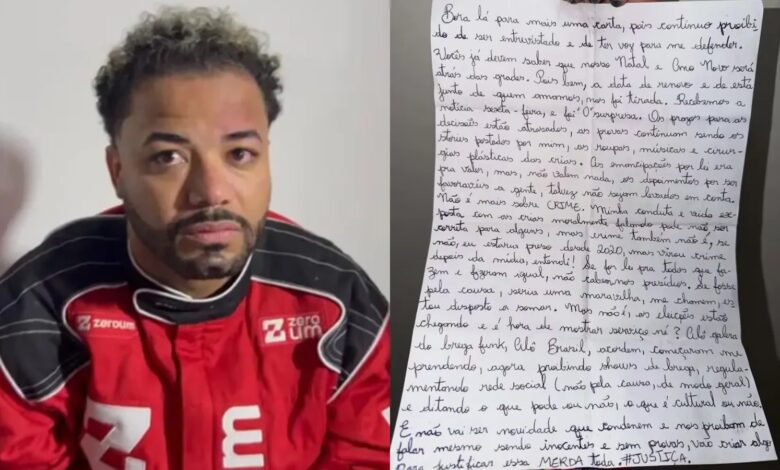 zeroum
zero
um
Bora lá para mais uma carta, pois continuo proibi
do de ser entrevistado e de ter voz para me defender.
Vocês já devem saber que nosso Natal e Ano Novo será
atrás das grades. Pois bem, a data de renovo e de está
junto de quem amamos, nos foi tirada. Recebemos a
notícia sexta-feira, e foi "O" surpresa. Os prazos para as
decisões estão atrasados, as provas continuam sendo os
stories postados por mim, as roupas, músicas e cirur-
gias plásticas das crias. As emancipações por lei era
pra valer, mas, não valem nada, os depoimentos por ser
favoráveis a gente, talvez não sejam levados em conta.
Não é mais sobre CRIME. Minha conduta e vida ex-
posta com as crias moralmente falando pode não ser
correta para alguns, mas crime também não é, se
não, eu estaria preso desde 2020, mas virou crime
depois da mídia, entendi! Se for lei pra todos que fa-
zem e fizeram igual, não caberia nos presídios. Se fosse
pela causa, seria uma maravilha, me chamem, es
tou disposto a somar. Mas não é, as eleições estão
chegando e é hora de mostrar serviço né? Alô galera
do brega funk, Alô Brasil, acordem, começaram me
prendendo, agora proibindo shows de brega, regula-
mentando rede social (não pela causa, de modo geral)
e ditando o que pode ou não, o que é cultural ou não.
E não vai ser novidade que condenem e nos proibam de
falar mesmo sendo inocentes e sem provas, vão criar algo
Para justificar essa MERDA toda. #JUSTIÇA.